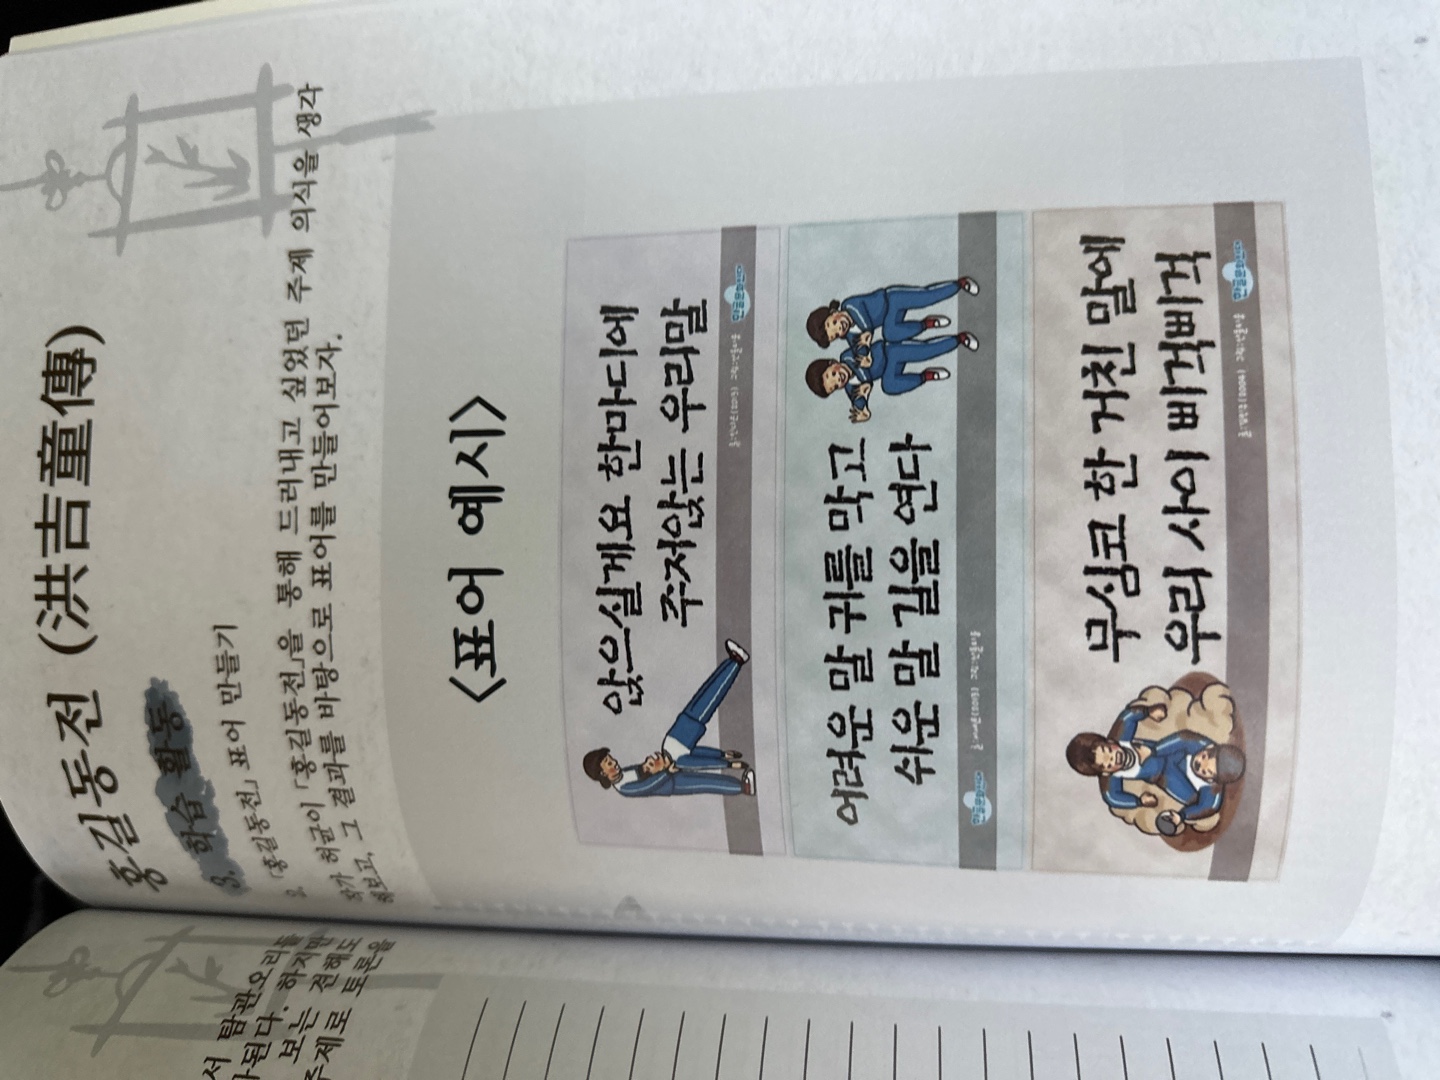 홍길동전 (洪吉童傳)
3. 학습 활동
3. 「홍길동전」 표어 만들기
작가 허균이 「홍길동전」을 통해 드러내고 싶었던 주제 의식을 생각
해보고, 그 결과를 바탕으로 표어를 만들어보자.
<표어 예시>
앉으실게요 한마디에
주저앉는 우리말
한글문화연대
어려운 말 귀를 막고
쉬운 말 길을 연다
한글문화연대
무심코 한 거친 말에
우리 사이 삐걱삐걱
한글문화연대
서 탐관오리를
된다. 하지만
보는 견해도
주제로 토론을